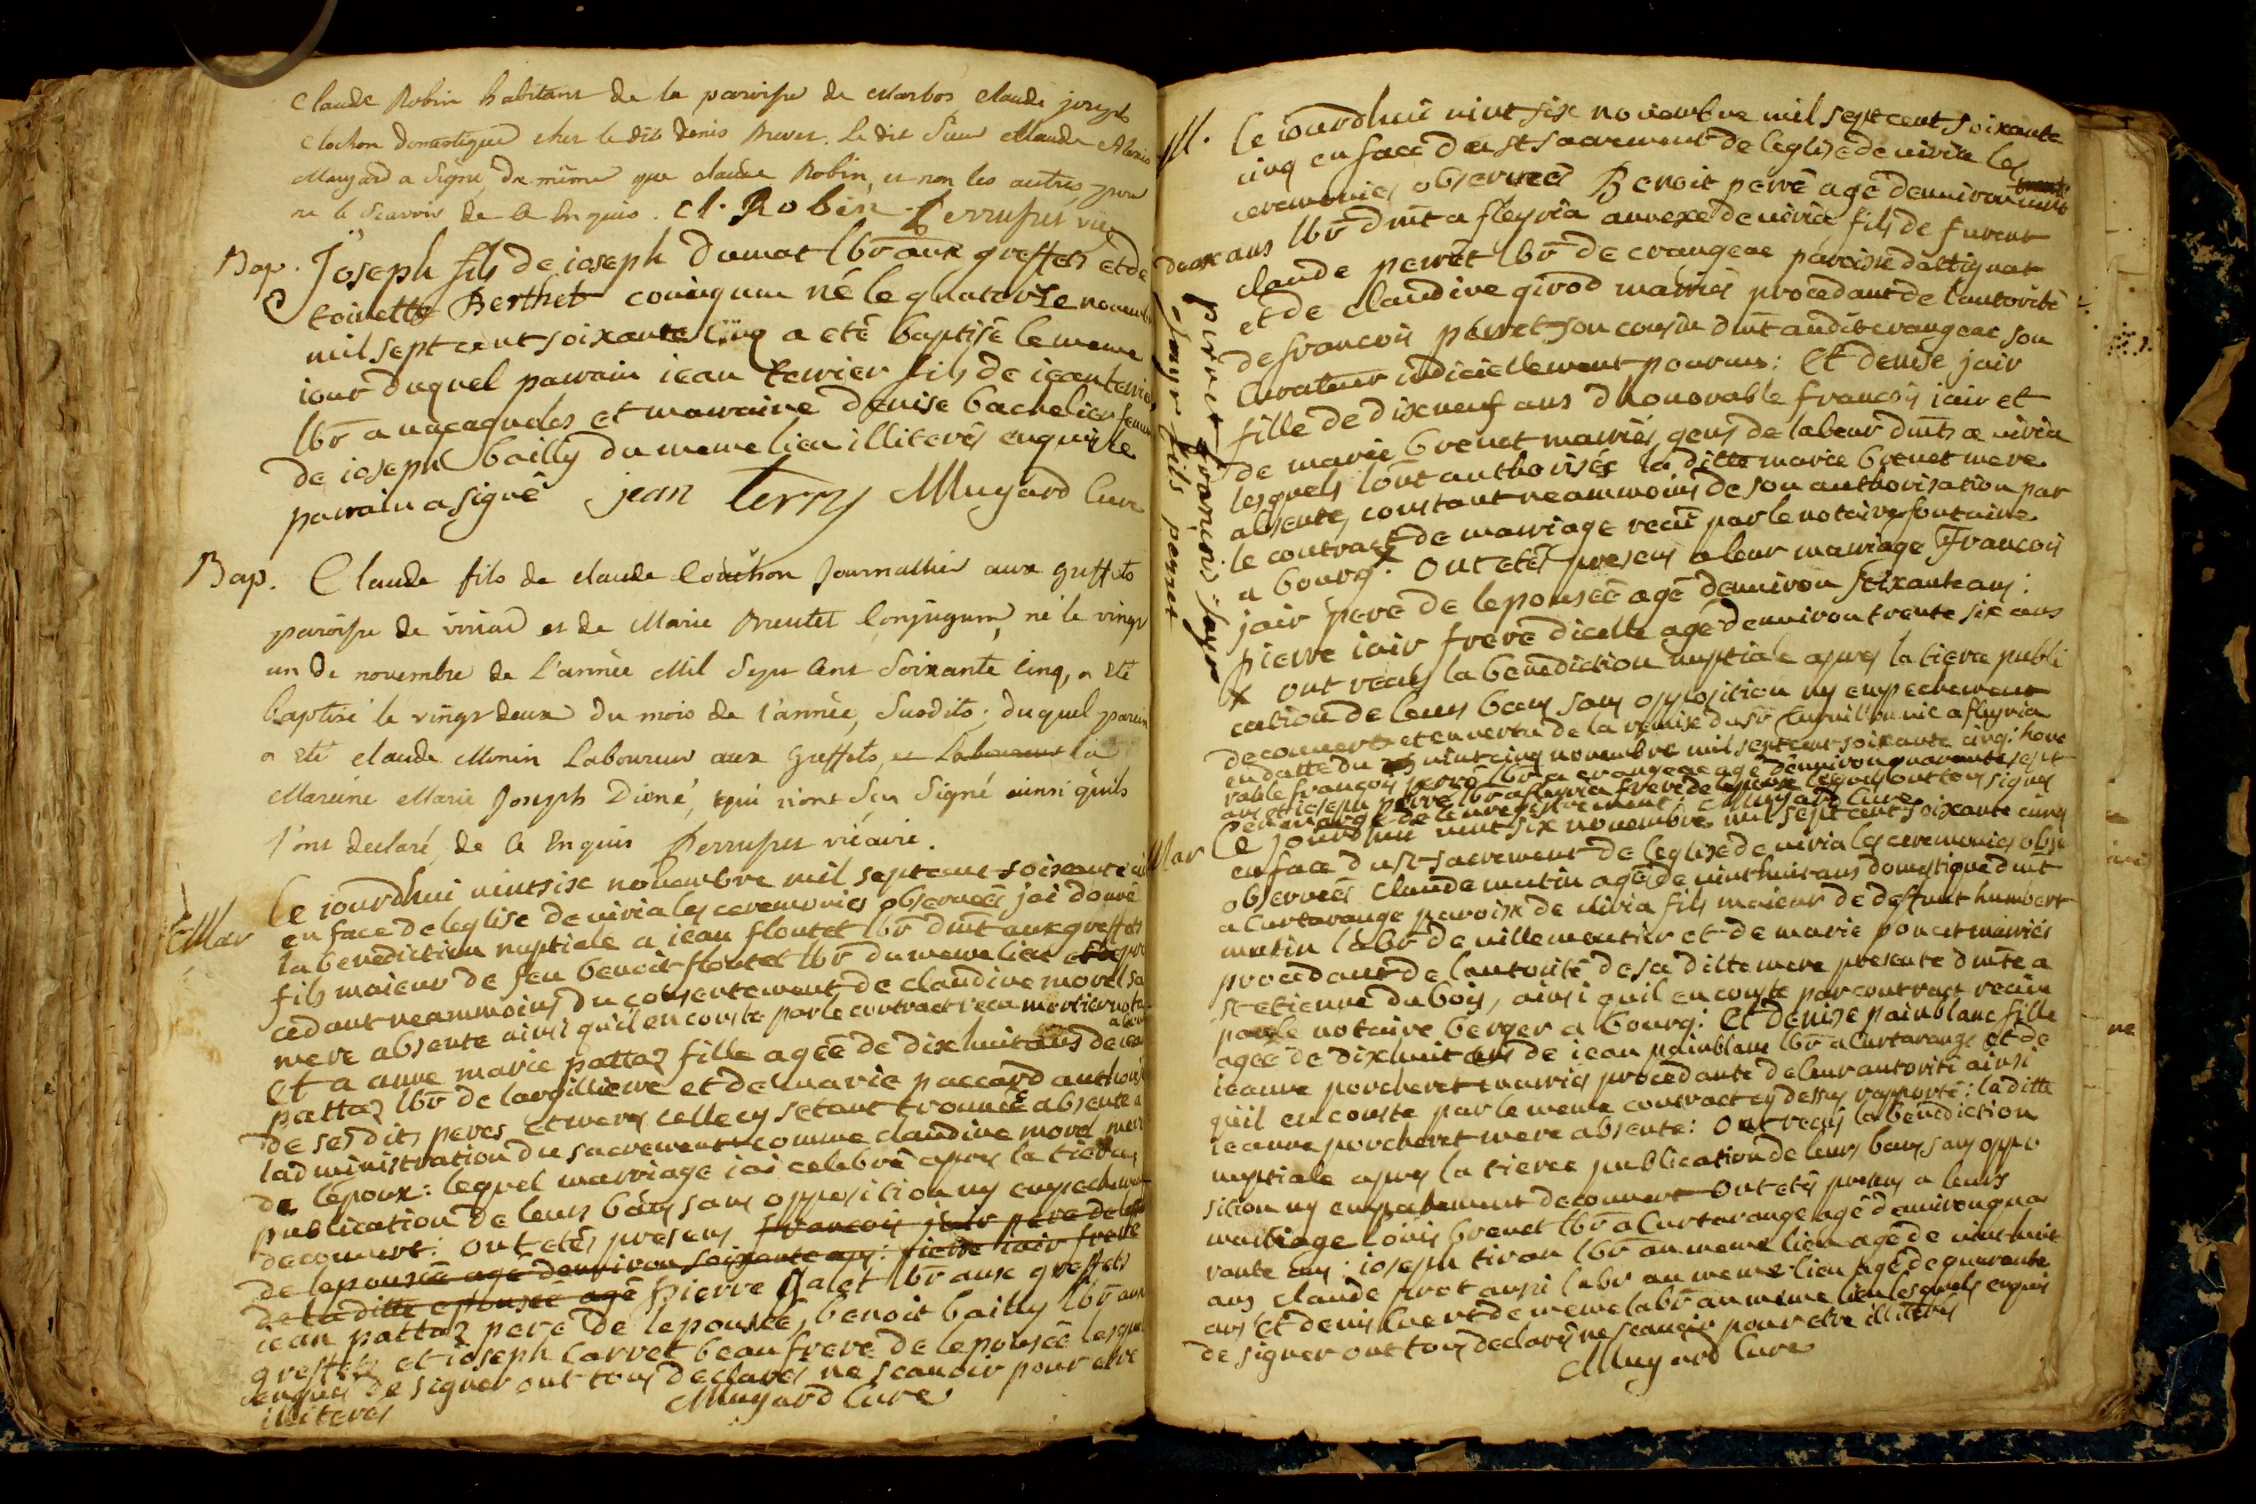 Claude Robin habitant de la paroisse de Marbos claude joseph
Clochon domestique chez le dit Denis Brevet. Le dit Sieur Claude Alexis
Muyard a signé, de même que claude Robin, et non les autres pour
ne le scavoir de ce Enquis. Cl. Robin Perruset vic
Bap. Joseph fils de ioseph Dumat lbr aux greffets et de
toinette Berthet coniugum né le quatorze novemb
mil sept cent soixante cinq a eté baptisé le meme
iour duquel parrain iean terrier fils de iean terrier
lbr a et marraine denise bachelier femme
de ioseph bailly du meme lieu illiterés enquis le
parrain a signé jean Terry Muyard Cure
Bap. Claude fils de claude Couchon Journallier aux greffets
paroisse de viriat et de Marie Brevet Conjugum, né le vingt
un de novembre de l'année Mil Sept Cent Soixante Cinq, a eté
baptisé le vingt deux du mois de l'année, Susdits; duquel parein
a eté claude Monin Laboureur aux Greffets, et Laboureur la
Mareine Marie Joseph Dioné, qui n'ont Scu Signé ainsi qu'ils
l'ont declaré, de ce Enquis Perruset vicaire.
Mar Le iourdhui vint six novembre mil sept cent soixante ci
en face de leglise de viria les ceremonies observées jai donné
la benediction nuptiale a iean floutet lbr dmt aux greffets
fils maieur de feu benoit floutet lbr du meme lieu et pro
cedant neammoins du consentement de claudine morel sa
mere absente ainsi quil en conste par le contract recu mortier nota
a bou
Et a anne marie pattaz fille agée de dix huit ans de iean
pattaz lbr de largilliere et de marie paccard authoris
de ses dits peres et mere celle cy setant trouvée absente a
ladministration du sacrement comme claudine morel mere
de lepoux: lequel marriage iai celebré apres la tierce
publication de leurs bans sans opposition ny empechement
decouvert: ont etés presens francois jair pere de lep
de lepousée agé denviron soixante ans: pierre iair frere
de la ditte epousée agé pierre Jalet lbr aux greffets
iean pattaz pere de lepousée, benoit bailly lbr aux
greffets et ioseph Carret beau frere de lepousée lesque
enquis de signer ont tous declarés ne scauoir pour etre
illiterés Muyard Cure
M. Le iourdhui vint six novembre mil sept cent soixante
cinq en face du st sacrement de leglise de viria les
ceremonies observées Benoit perré agé denviron vint
deux ans lbr dmt a fleyria annexe de viria fils de furent
claude perret lbr de crangeac paroisse dattignat
et de claudine girod marriés procedant de lautorité
de francois perret son cousin dmt audit crangeac son
Curateur iudiciellement pourvu: Et denise jair
fille de dix neuf ans dhonorable francois iair et
de marie brevet marriés gens de labeur dmts a viria
lesquels lont authorisée la ditte marie brevet mere
absente, constant neammoins de son authorisation par
le contract de marriage recu par le notaire fontaine
a bourg: x ont etés presens a leur marriage Francois
jair pere de lepousée agé denviron soixante ans:
pierre iair frere dicelle agé denviron trente six ans
x ont recus la benediction nuptiale apres la tierce publi
cation de leurs bans sans opposition ny empechement
decouvert et en vertu de la remise du sr vic a fleyria
en datte du vint cinq novembre mil sept cent soixante cinq: hono
rable francois perré lbr a crangeac agé denviron quarante sept
ans et ioseph perré lbr a fleyria frere de lepoux lesquels ont tous signés
en marge de lenregistrement: Muyard Cure
pierret francois: jayr
jayr fils perret
Mar Le jourdhui vint six novembre mil sept cent soixante cinq
en face du st sacrement de leglise de viria les ceremonies obse
observées claude mutin agé de vint huit ans domestique dmt
a Curtarange paroisse de viria fils maieur de deffunt humbert
mutin labr de villemoutier et de marie poncet marriés
procedant de lautorité de sa ditte mere presente dmte a
st etienne du bois, ainsi quil en conste par contract recu
par le notaire berger a bourg: Et denise painblanc fille
agée de dix huit ans de iean painblanc lbr a Curtarange et de
ieanne porcheret marriés procedante de leur autorité ainsi
quil en conste par le meme contract cy dessus rapporté: la ditte
ieanne porcheret mere absente: ont recus la benediction
nuptiale apres la tierce publication de leurs bans sans oppo
sition ny empechement decouvert ont etés presens a leurs
marriage louis brevet lbr a Curtarange agé denviron qua
rante ans: ioseph tiran lbr au meme lieu agé de vint huit
ans claude prot aussi labr au meme lieu agé de quarante
ans Et denis de meme labr au meme lieu lesquels enquis
de signer ont tous declarés ne scauoir pour etre illiterés
Muyard Cure